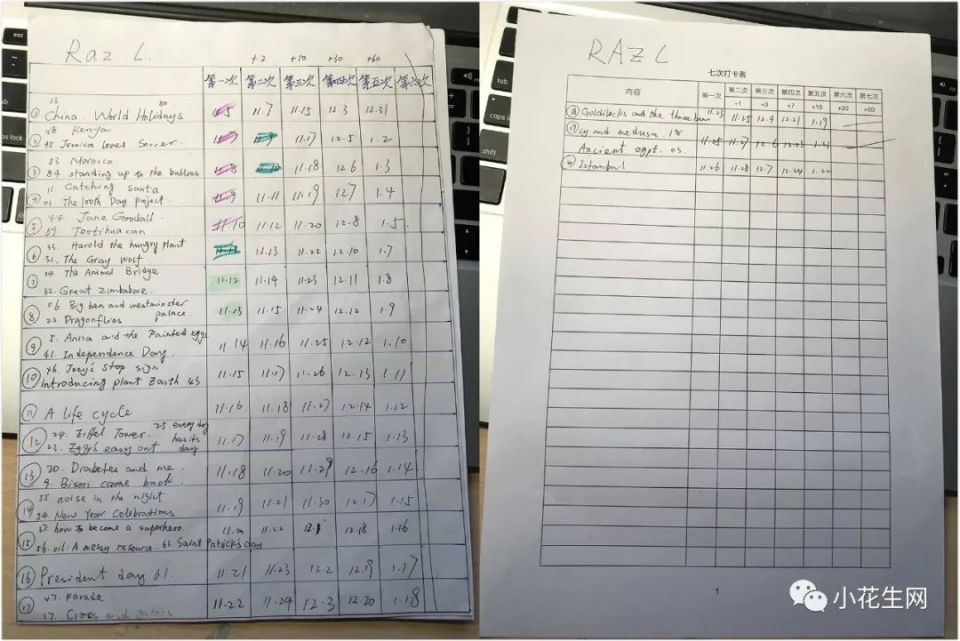 Raz. L.
+2 +10 +30 +60
第一次 第二次 第三次 第四次 第五次 第六次
13 80
① China. World Holidays 11.7 11.15 12.3 12.31
48 Kenya
② 98 Jessica Loves Soccer 11.17 12.5 1.2
83 Morocco
③ 84. standing up to the 11.18 12.6 1.3
11 Catching santa
④ 01. The 100th Day Project. 11.11 11.19 12.7 1.4
44. Jane Goodall.
⑤ 69. Teotihuacan 11.12 11.20 12.8 1.5
33. Harold the hungry plant
⑥ 31. The Gray wolf 11.13 11.22 12.10 1.7
14 The Animal Bridge
⑦ 32. Great Zimbabwe. 11.12 11.14 11.23 12.11 1.8
06. Big ben and westminster
⑧ 22. Dragonflies palace 11.13 11.15 11.24 12.12 1.9
5. Anna and the Painted eggs
⑨ 41. Independence Day. 11.14 11.16 11.25 12.12 1.10
46. Joey's stop sign
⑩ introducing plant Earth 43 11.15 11.17 11.26 12.13 1.11
⑪ A life cycle 11.16 11.18 11.27 12.14 1.12
24. Eiffel Tower. 25 every dog
⑫ 23. Eggy's easy out has its day 11.17 11.19 11.28 12.15 1.13
20. Diabetes and me.
⑬ 9. Bison come back. 11.18 11.20 11.29 12.16 1.14
55 noise in the night
⑭ 54. New Year Celebrations 11.19 11.21 11.30 12.17 1.15
37. how to become a superhero.
⑮ 56. oil: A messy resource. 63. Saint Patrick's day 11.22 12.1 12.18 1.16
⑯ President day 61. 11.21 11.23 12.2 12.19 1.17
47. Karate.
⑰ 17. Crocs and gators 11.22 11.24 12.3 12.20 1.18
RAZ L
七次打卡表
内容 第一次 第二次 第三次 第四次 第五次 第六次 第七次
+1 +3 +7 +15 +30 +60
Goldilocks and the three bears 11.23 11.25 12.4 12.21 1.19
Ly and medusa. 11.27 12.6
Ancient egpt. 05
Istanbul 11.26 11.28 12.7 12.24 1.22
1
小花生网